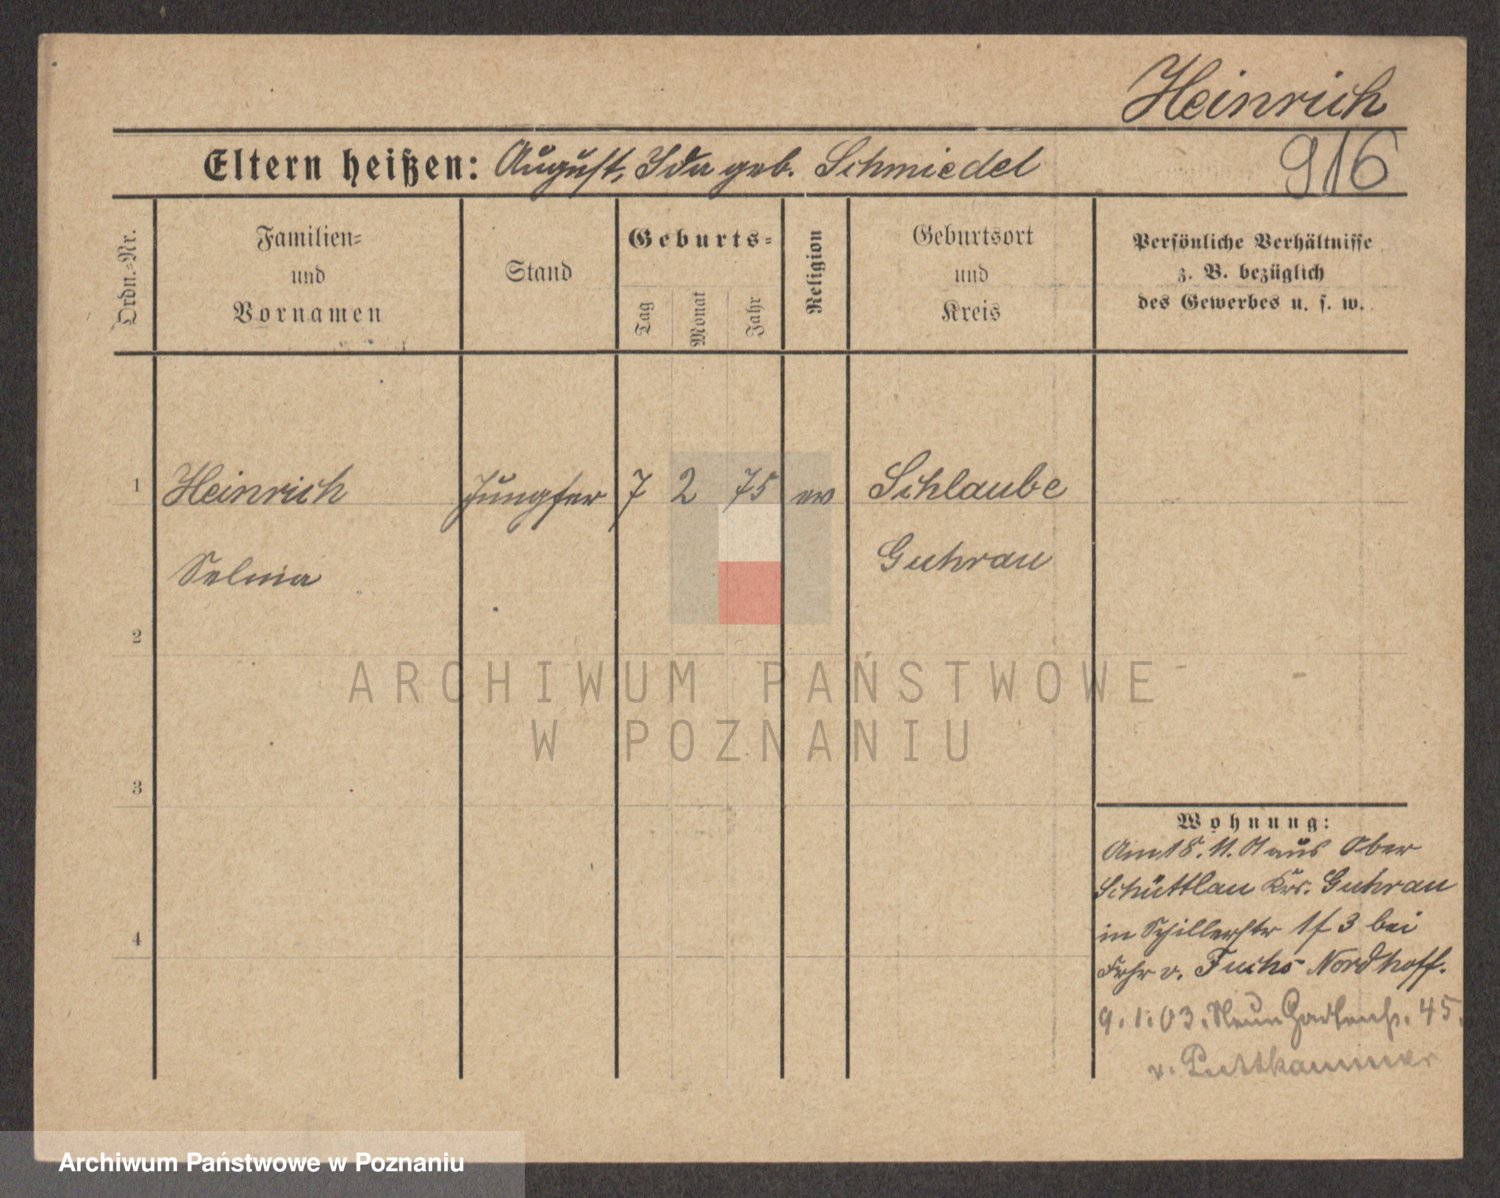 Heinrich
916
Eltern heißen: August, Ida geb. Schmiedel
Ordn.-Nr.
Familien-
und
Vornamen
Stand
Geburts-
Tag
Monat
Jahr
Religion
Geburtsort
und
Kreis
Persönliche Verhältnisse
z. B. bezüglich
des Gewerbes u. s. w.
1 Heinrich Jungfer 7 2 75 ev Schlaube
Selma Guhrau
2
3
4
Wohnung:
Am 18. 11. aus Ober
Schüttlau Krs. Guhrau
in Schillerstr 3 bei
Frhr v. Fuchs Nordhoff.
9. 1. 03. 45.
v. Puttkammer
ARCHIWUM PAŃSTWOWE
W POZNANIU
Archiwum Państwowe w Poznaniu